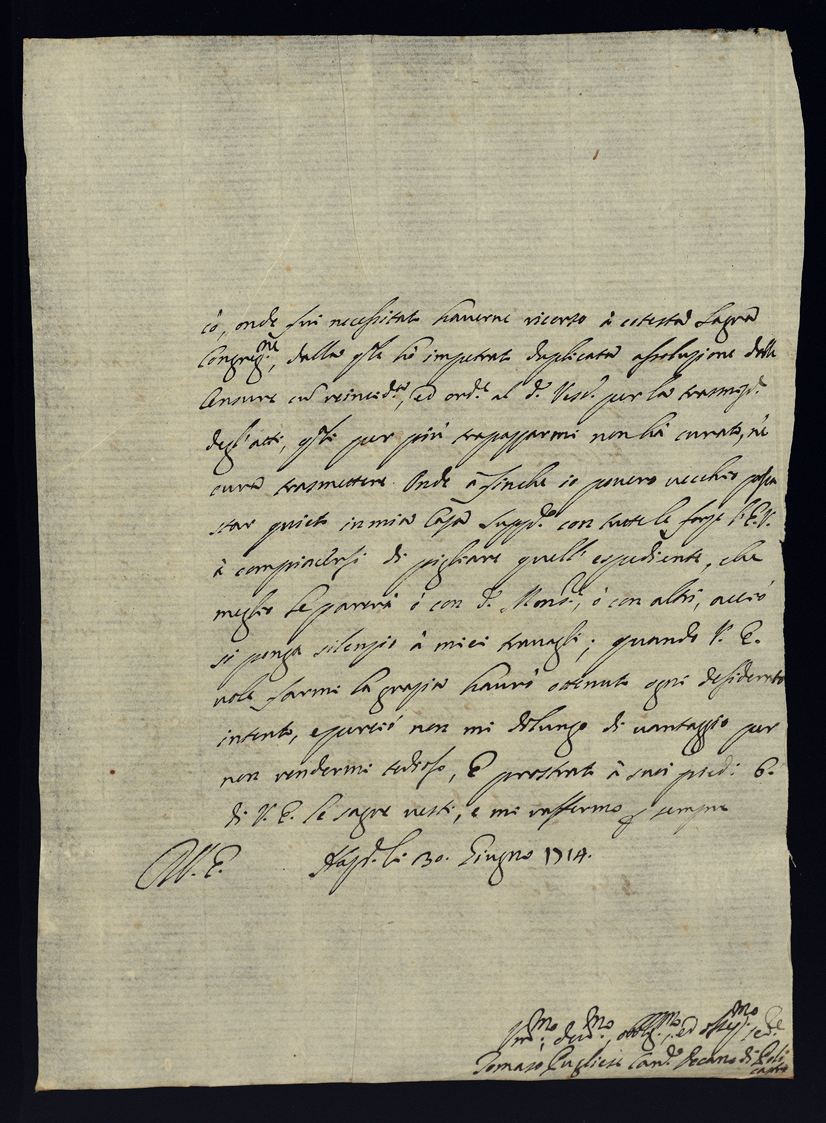 ió, onde fui necessitato haverne ricorso à cotesta Sagra
Congreg.ne, dalla q.le hò impetrato duplicata assoluzione dalle
Censure cũ reincid.a, ed ord.e al d.o Vesc.o per la
degl'atti, per più non hà curato, nè
cura trasmettere. Onde àfinche io povero vecchio possa
star quieto in mia Casa supp.co con tutte le forze l'E.V.
à compiacersi di pigliare quell'espediente, che
meglio le parerà ò con d.o Mons.r, ò con altri, acciò
si ponga silenzio à miei travagli; quando V. E.
vole farmi la grazia haurò ottenuto ogni desiderato
intento, e perciò non mi dilungo di vantaggio per
non rendermi tedioso, E prostrato à suoi piedi b.
di V. E. le sagre vesti, e mi raffermo p sempre
D.V.E. li 30. Giugno 1714.
dev.mo, obblig.mo, ed osseq.mo
Tomaso Pugliese Can.co Decano di Poli
castro